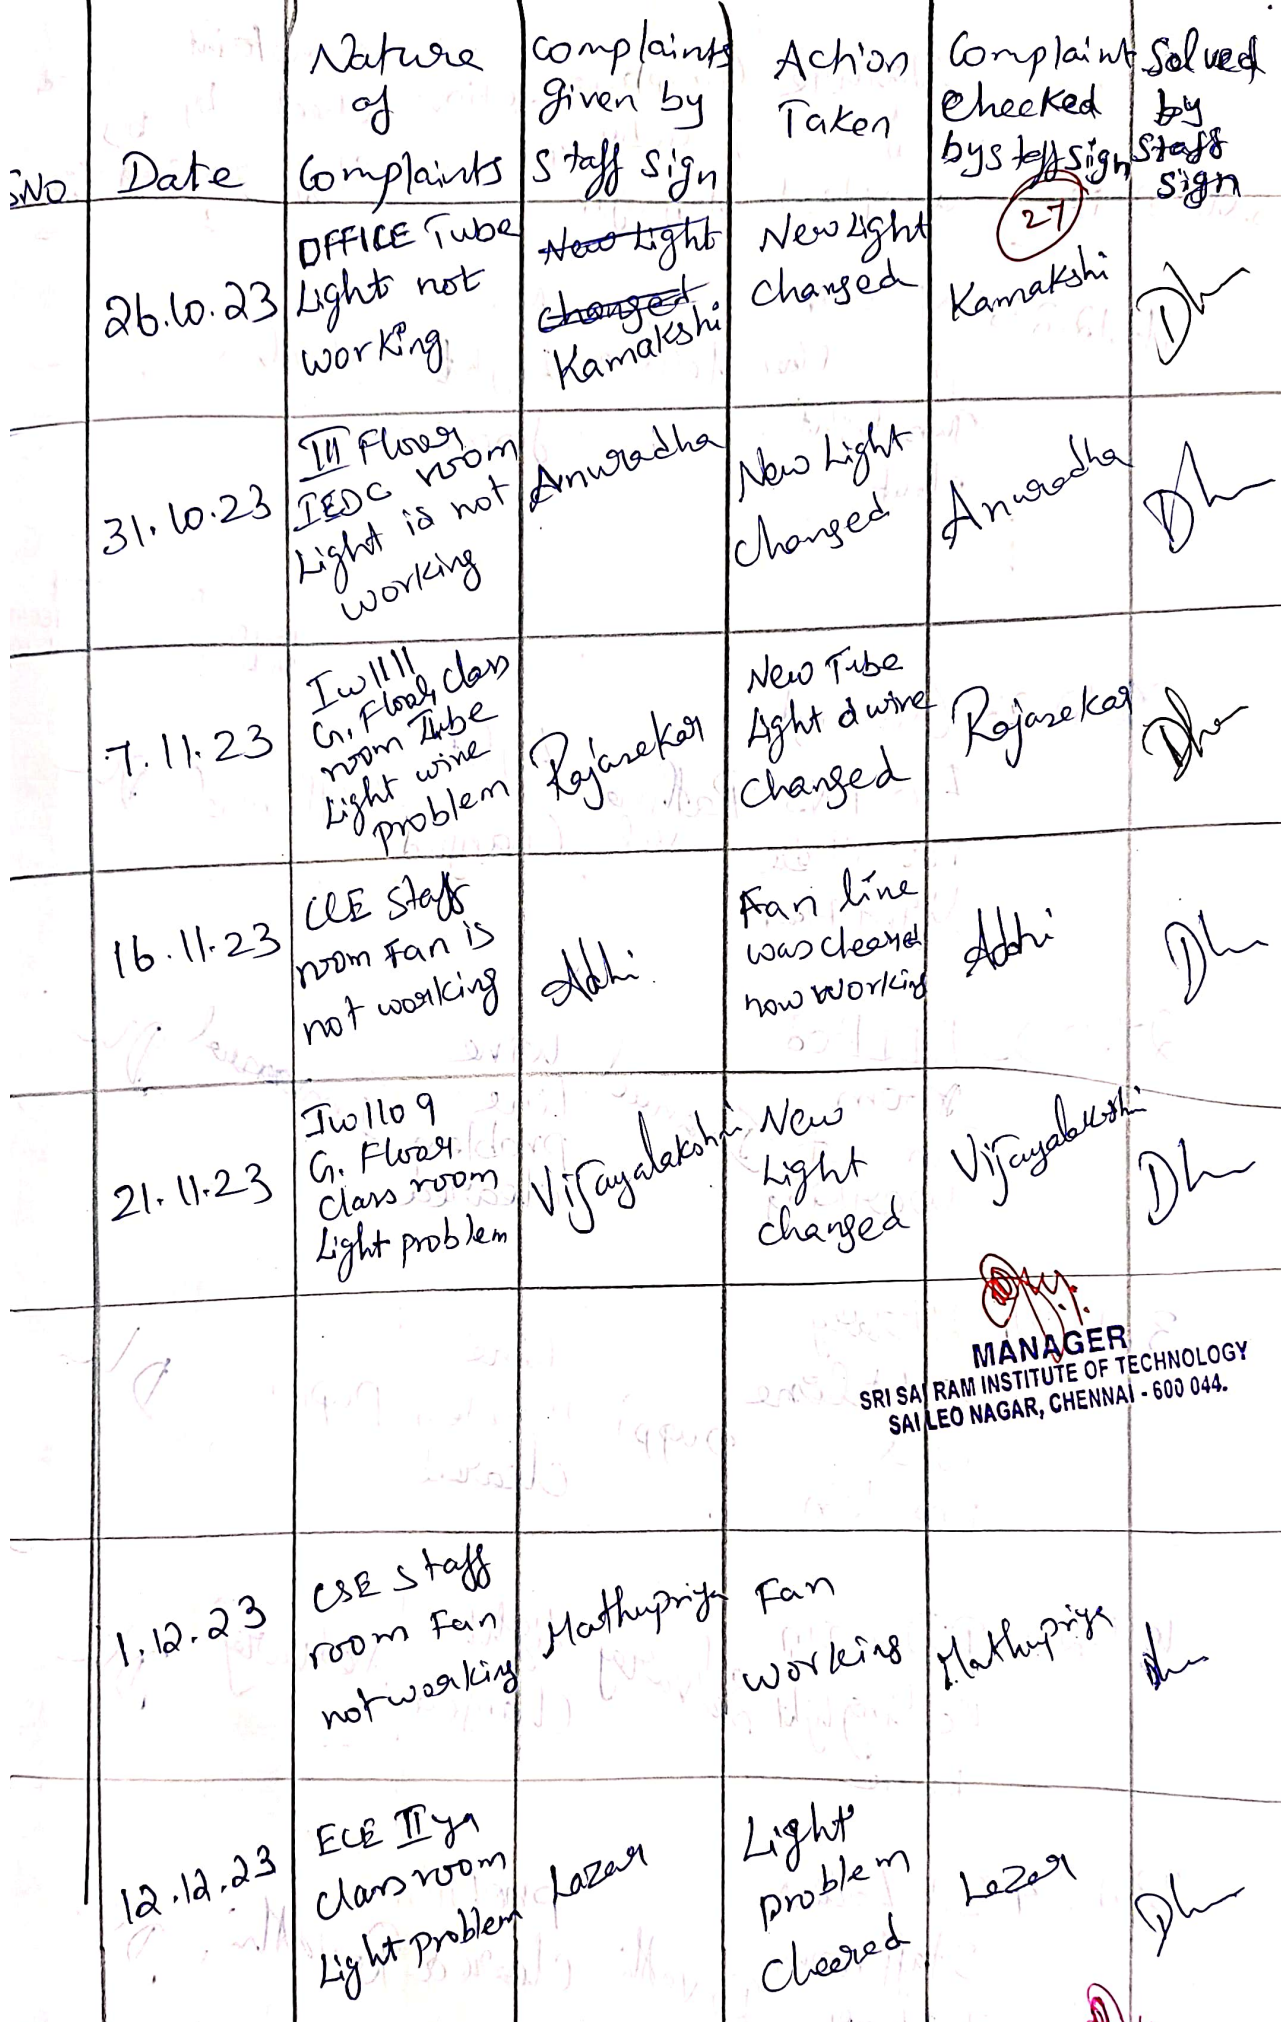 S.NO
Date
Nature
of
Complaints
complaints
given by
Staff sign
Action
Taken
Complaint
checked
by staff sign
Solved
by
Staff
sign
27
26.10.23
OFFICE Tube
Light not
working
New Light
changed
Kamakshi
New Light
changed
Kamakshi
31.10.23
III Floor
IEDC room
Light is not
working
Anuradha
New Light
changed
Anuradha
7.11.23
G. Floor class
room Tube
Light wire
problem
Rajasekar
New Tube
Light & wire
changed
Rajasekar
16.11.23
Staff
room Fan is
not working
Fan line
was cleared
now working
21.11.23
G. Floor
class room
Light problem
Vijayalakshmi
New
Light
changed
Vijayalakshmi
MANAGER
SRI SAI RAM INSTITUTE OF TECHNOLOGY
SAI LEO NAGAR, CHENNAI - 600 044.
1.12.23
CSE Staff
room Fan
not working
Mathupriya
Fan
working
Mathupriya
12.12.23
ECE II yr
class room
Light problem
Lazar
Light
problem
cleared
Lazar